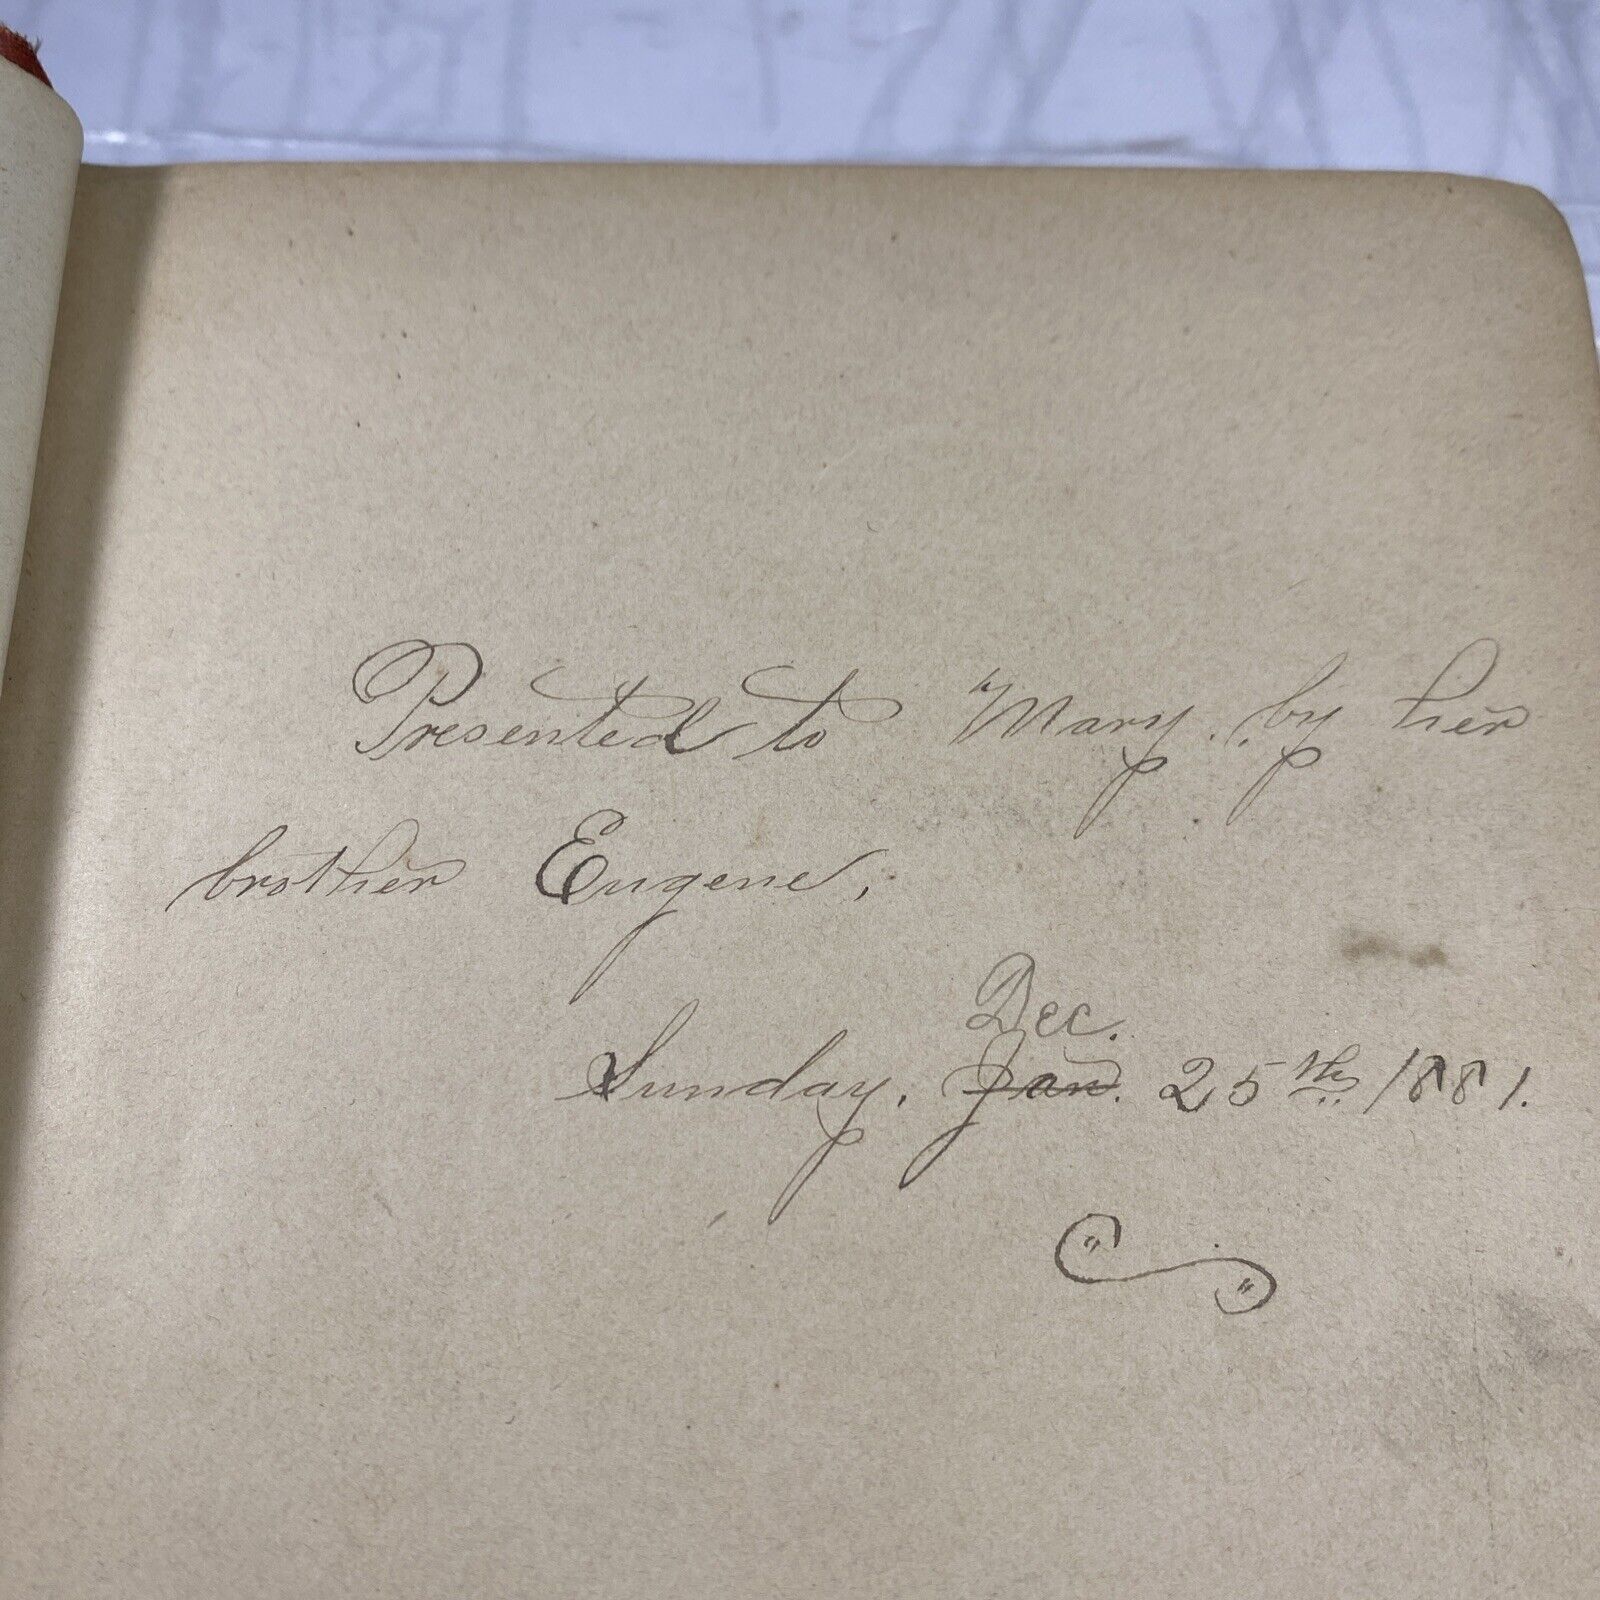 Presented to Mary. by her
brother Eugene,
Dec.
Sunday, Jan. 25th 1881.